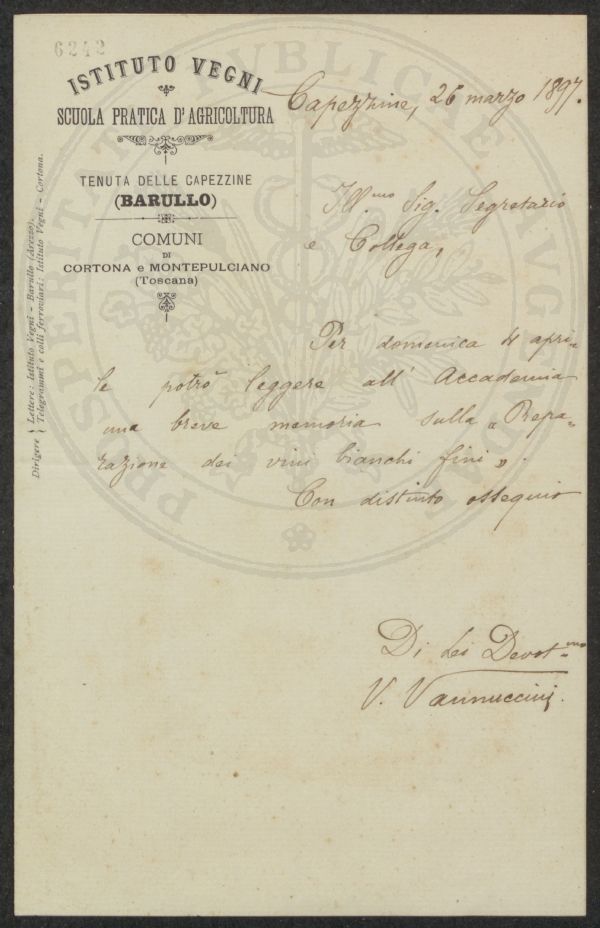 6242
ISTITUTO VEGNI
SCUOLA PRATICA D'AGRICOLTURA
TENUTA DELLE CAPEZZINE
(BARULLO)
COMUNI
DI
CORTONA e MONTEPULCIANO
(Toscana)
Dirigere { Lettere: Istituto Vegni - Barullo (Arezzo).
Telegrammi e colli ferroviari: Istituto Vegni - Cortona.
Capezzine, 26 marzo 1897.
Ill.mo Sig. Segretario
e Collega,
Per domenica 4 apri-
le potrò leggere all' Accademia
una breve memoria sulla « Prepa-
razione dei vini bianchi fini ».
Con distinto ossequio
Di Lei Devot.mo
V. Vannuccini.
PROSPERITATI PUBLICAE AUGENDAE